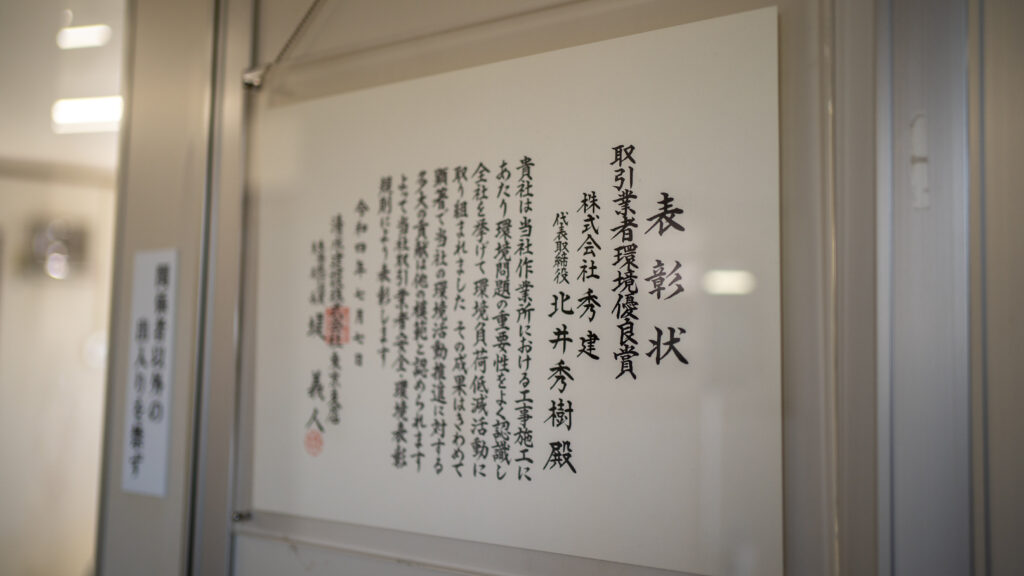 表彰状
取引業者環境優良賞
株式会社 秀建
代表取締役 北井秀樹 殿
貴社は当社作業所における工事施工に
あたり環境問題の重要性をよく認識し
全社を挙げて環境負荷低減活動に
取り組まれました その成果はきわめて
顕著で当社の環境活動推進に対する
多大の貢献は他の模範と認められます
よって当社取引業者安全・環境表彰
規則により表彰します
令和四年七月七日
清水建設株式会社東京支店
堤 義人
関係者以外の
出入りを禁ず